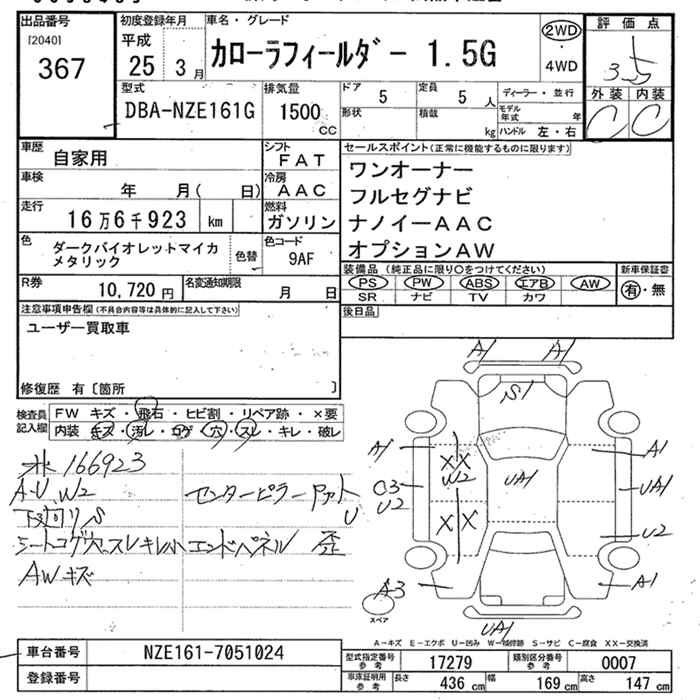 出品番号 初度登録年月 車名・グレード 評価点
[2040] 平成 2WD
367 25 3月 カローラフィールダー 1.5G ・ 3.5
4WD
型式 排気量 ドア 5 定員 5人 ディーラー・並行 外装 内装
DBA-NZE161G 1500 形状 積載 モデル年式 年 C C
cc kg ハンドル 左・右
車歴 自家用 シフト FAT セールスポイント(正常に機能するものに限ります)
車検 年 月( 日) 冷房 AAC ワンオーナー
フルセグナビ
走行 16万6千923 km 燃料 ガソリン ナノイーAAC
オプションAW
色 ダークバイオレットマイカ 色替 色コード
メタリック 9AF 装備品(純正品に限り○をつけてください) 新車保証書
R券 10,720円 名変通知期限 月 日 PS PW ABS エアB AW 有・無
SR ナビ TV カワ
注意事項申告欄(不具合内容等は具体的に記入して下さい) 後日品
ユーザー買取車
修復歴 有〔箇所 〕
検査員 FW キズ・飛石・ヒビ割・リペア跡・×要
記入欄 内装 キズ・汚レ・コゲ・穴・スレ・キレ・破レ
A1 A1
S1
A1 XX A1
W2
UA1
03 UA1
U2
XX U2
A3 A1
UA1
スペア
米 166923
A-U、W2 センターピラー
下回りS U
シートコゲ穴、スレキレ エンドパネル 歪
AWキズ
A-キズ E-エクボ U-凹み W-補修跡 S-サビ C-腐食 XX-交換済
車台番号 NZE161-7051024 型式指定番号 参考 17279 類別区分番号 参考 0007
登録番号 車庫証明用 参考 長さ 436cm 幅 169cm 高さ 147cm